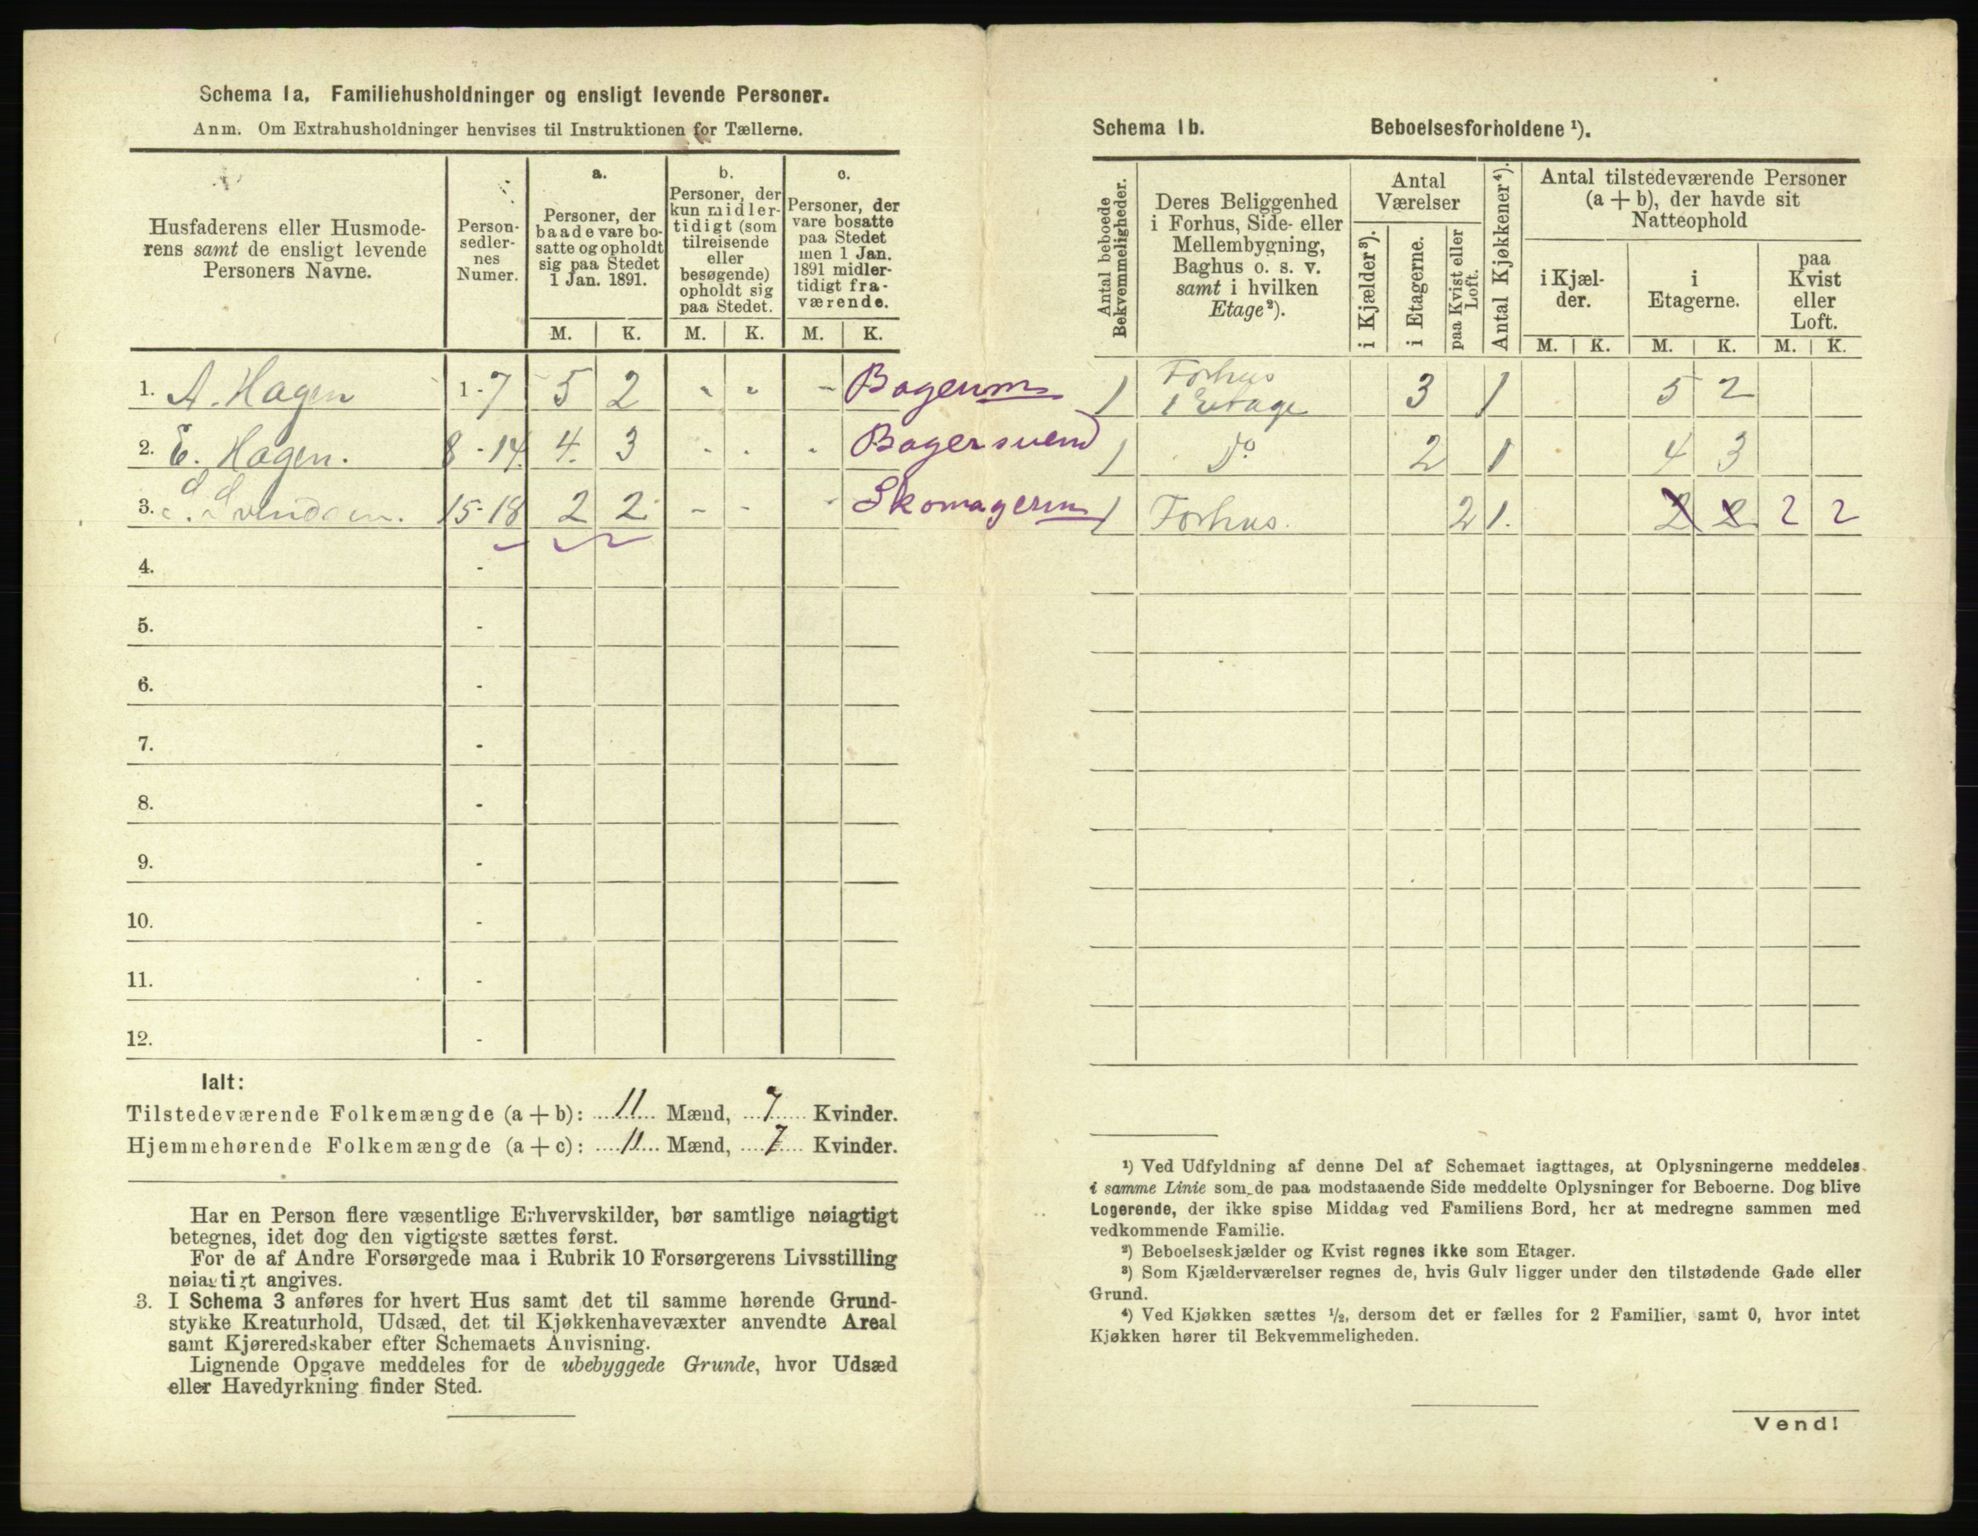 Schema 1a. Familiehusholdninger og ensligt levende Personer.
Anm. Om Extrahusholdninger henvises til Instruktionen for Tællerne.
Husfaderens eller Husmode-
rens samt de ensligt levende
Personers Navne.
Person-
sedler-
nes
Numer.
a.
Personer, der
baade vare bo-
satte og opholdt
sig paa Stedet
1 Jan. 1891.
b.
Personer, der
kun midler-
tidigt (som
tilreisende
eller
besøgende)
opholdt sig
paa Stedet.
c.
Personer, der
vare bosatte
paa Stedet
men 1 Jan.
1891 midler-
tidigt fra-
værende.
M. K. M. K. M. K.
1. A. Hagen 1-7 5 2 - - -
2. E. Hagen. 8-14 4. 3 - - -
3. Svendsen. 15-18 2 2 - - -
4. -
5. -
6. -
7. -
8. -
9. -
10. -
11. -
12. -
Ialt:
Tilstedeværende Folkemængde (a + b): 11 Mænd, 7 Kvinder.
Hjemmehørende Folkemængde (a + c): 11 Mænd, 7 Kvinder.
Har en Person flere væsentlige Erhvervskilder, bør samtlige nøiagtigt
betegnes, idet dog den vigtigste sættes først.
For de af Andre Forsørgede maa i Rubrik 10 Forsørgerens Livsstilling
nøiagtigt angives.
3. I Schema 3 anføres for hvert Hus samt det til samme hørende Grund-
stykke Kreaturhold, Udsæd, det til Kjøkkenhavevæxter anvendte Areal
samt Kjøreredskaber efter Schemaets Anvisning.
Lignende Opgave meddeles for de ubebyggede Grunde, hvor Udsæd
eller Havedyrkning finder Sted.
Schema 1b. Beboelsesforholdene ¹).
Antal beboede
Bekvemmeligheder.
Deres Beliggenhed
i Forhus, Side- eller
Mellembygning,
Baghus o. s. v.
samt i hvilken
Etage²).
Antal
Værelser
i Kjælder³).
i Etagerne.
paa Kvist eller
Loft.
Antal Kjøkkener⁴).
Antal tilstedeværende Personer
(a + b), der havde sit
Natteophold
i Kjæl-
der.
i
Etagerne.
paa
Kvist
eller
Loft.
M. K. M. K. M. K.
Bagerm 1 Forhus
1 Etage 3 1 5 2
Bagersvend 1 do 2 1 4 3
Skomagerm 1 Forhus. 2 1. 2 2 2 2
¹) Ved Udfyldning af denne Del af Schemaet iagttages, at Oplysningerne meddeles
i samme Linie som de paa modstaaende Side meddelte Oplysninger for Beboerne. Dog blive
Logerende, der ikke spise Middag ved Familiens Bord, her at medregne sammen med
vedkommende Familie.
²) Beboelseskjælder og Kvist regnes ikke som Etager.
³) Som Kjælderværelser regnes de, hvis Gulv ligger under den tilstødende Gade eller
Grund.
⁴) Ved Kjøkken sættes ½, dersom det er fælles for 2 Familier, samt 0, hvor intet
Kjøkken hører til Bekvemmeligheden.
Vend!